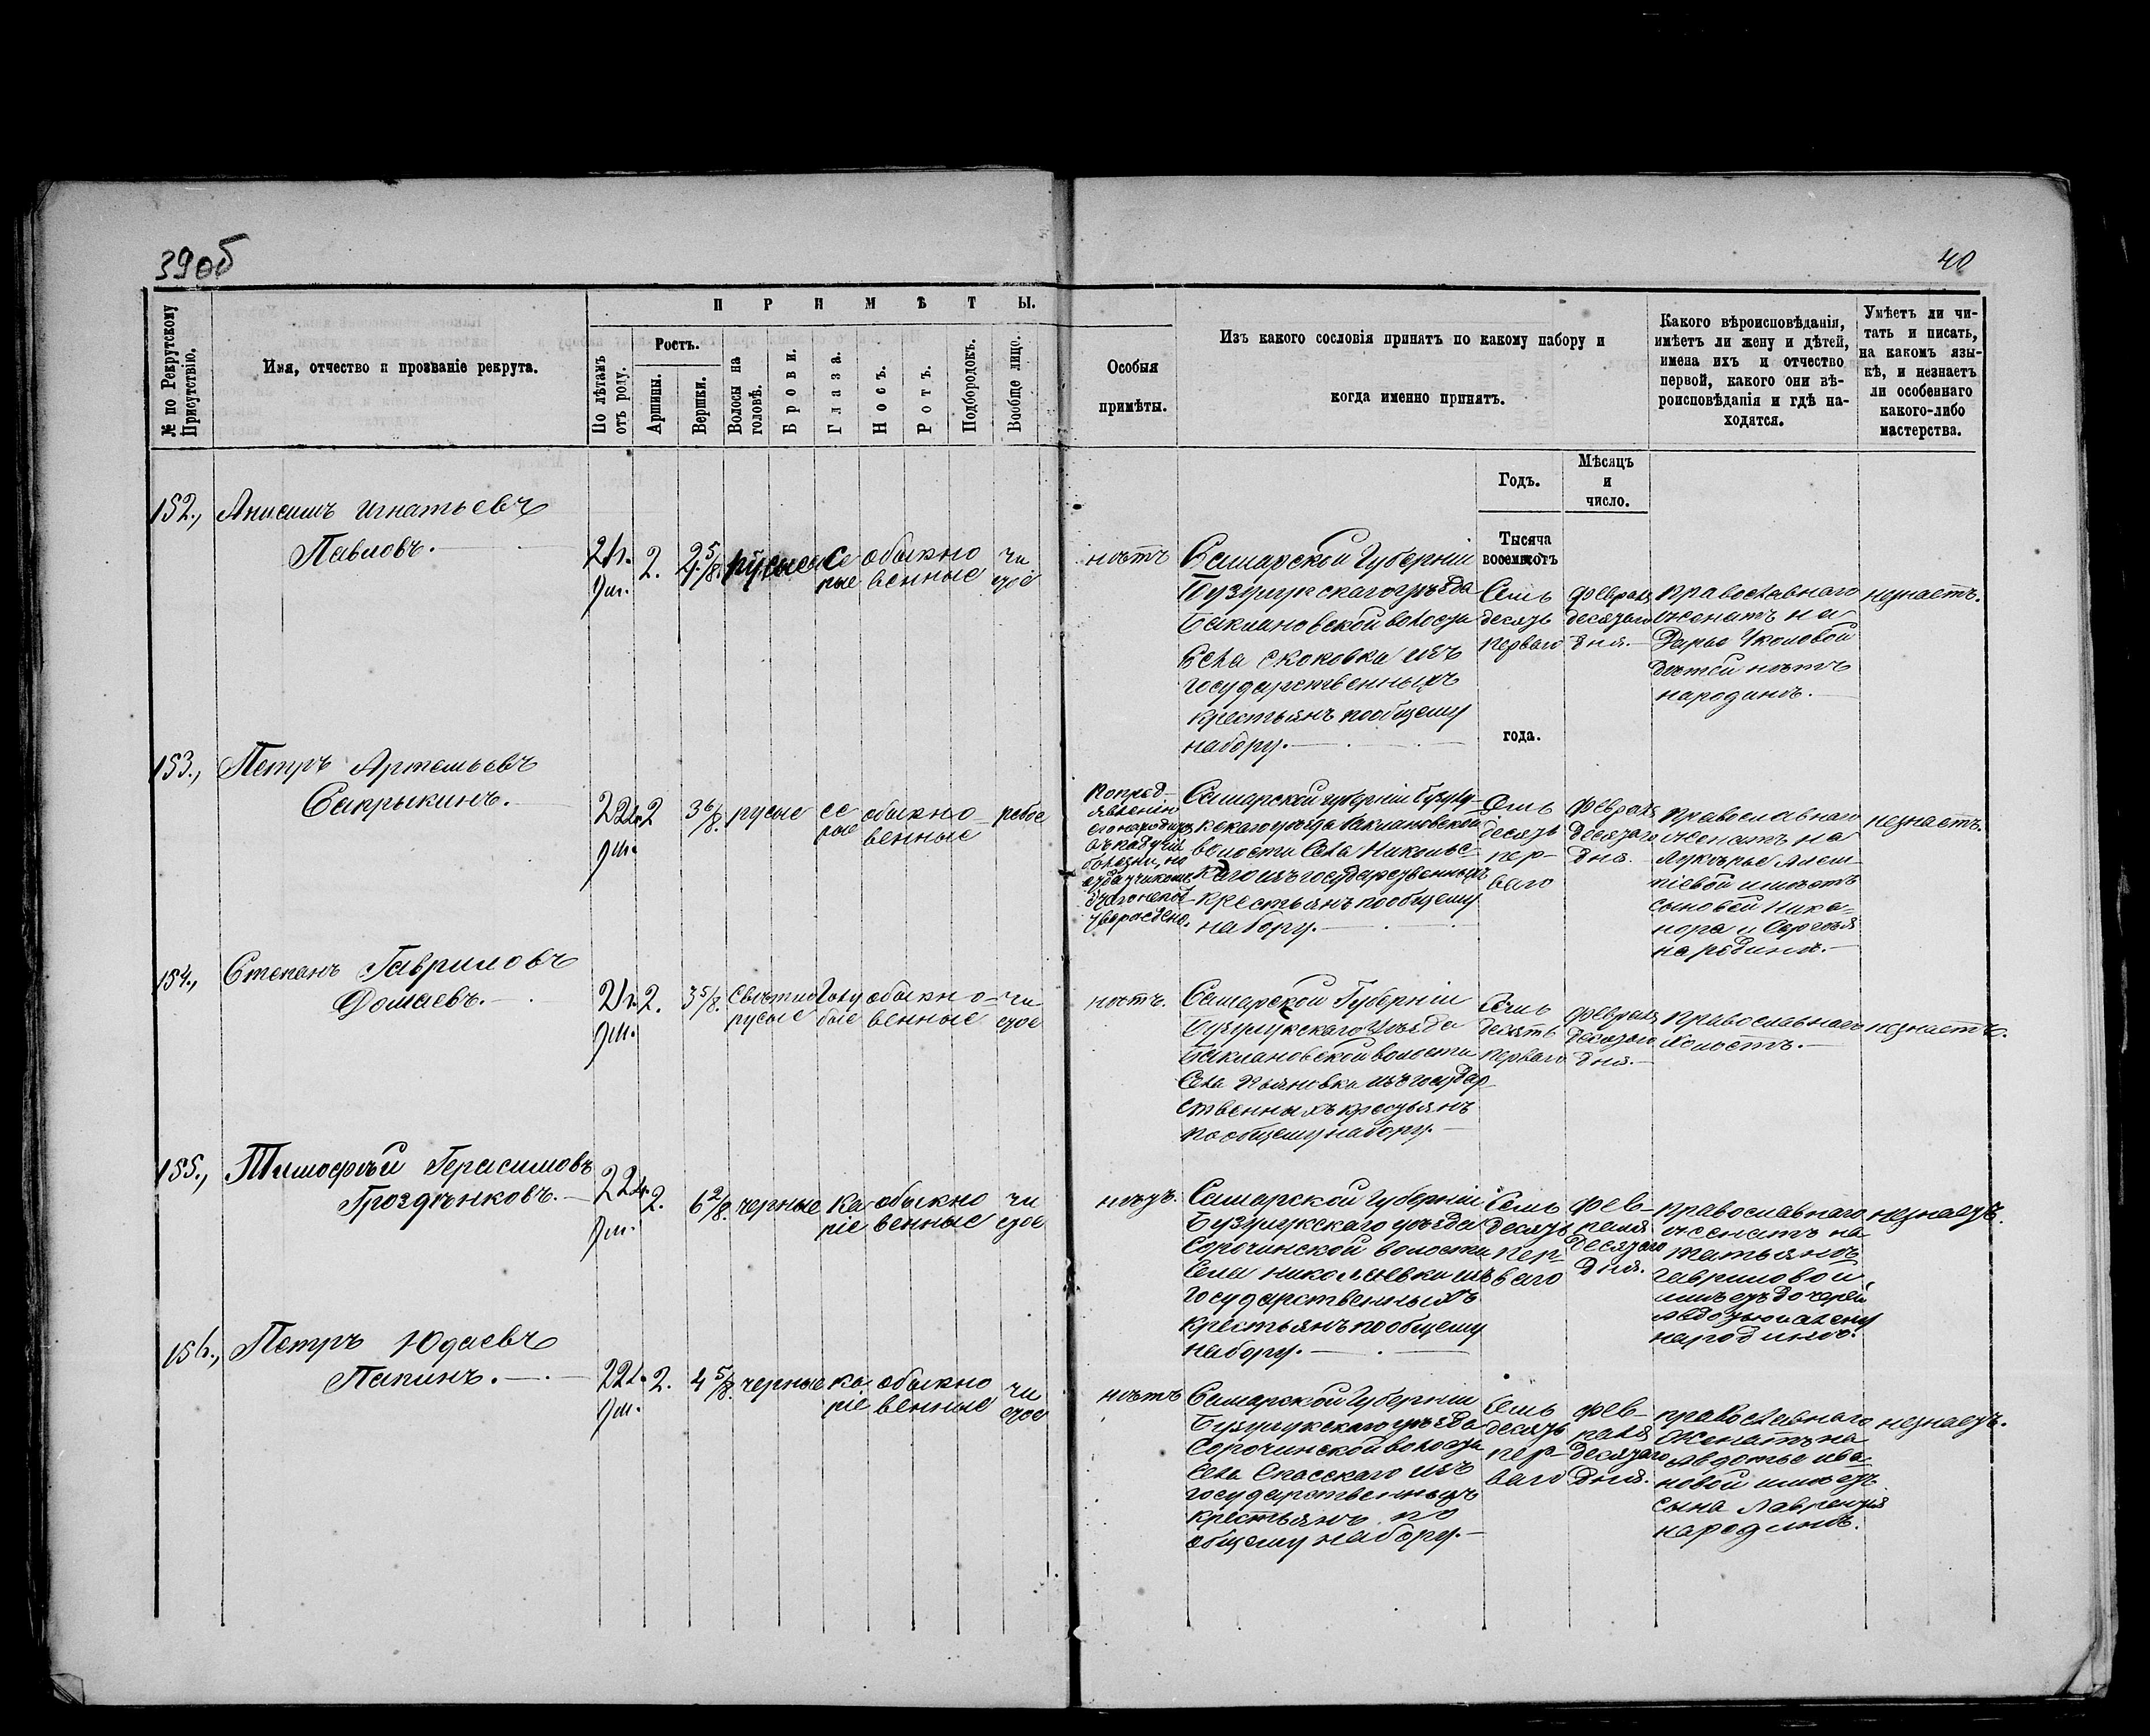 39об
40
№ по Рекрутскому Присутствію.
Имя, отчество и прозваніе рекрута.
ПРИМѢТЫ.
По лѣтамъ отъ роду.
Ростъ.
Аршины.
Вершки.
Волосы на головѣ.
Брови.
Глаза.
Носъ.
Ротъ.
Подбородокъ.
Вообще лицо.
Особыя
примѣты.
Изъ какого сословія принятъ по какому набору и
когда именно принятъ.
Какого вѣроисповѣданія,
имѣетъ ли жену и дѣтей,
имена ихъ и отчество
первой, какого они вѣ-
роисповѣданія и гдѣ на-
ходятся.
Умѣетъ ли чи-
тать и писать,
на какомъ язы-
кѣ, и незнаетъ
ли особеннаго
какого-либо
мастерства.
Годъ.
Мѣсяцъ
и
число.
Тысяча
восемьсотъ
года.
152., Анисимъ Игнатьевъ
Павловъ.
2. русые
се
рые
обыкно
венные
чи
стое
нѣтъ
Самарской Губерніи
Бузулукскаго уѣзда
Баклановской волости
Села Скоковка изъ
государственныхъ
крестьянъ по общему
набору.
Семь
десятъ
перваго
февраля
десятаго
дня.
православнаго
женатъ на
Дарье
дѣтей нѣтъ
на родинѣ.
незнаетъ.
153., Петръ Артемьевъ
Сапрыкинъ.
2 3 6/8. русые
се
рые
обыкно
венные
рябое
По пред-
явленію
его народъ
болезни, но
Самарской губерніи Бузулу-
кскаго уѣзда Баклановской
волости Села Никольс-
каго изъ государственныхъ
крестьянъ по общему
набору.
Семь
десятъ
пер-
ваго
февраля
десятаго
дня.
Православнаго
женатъ на
Лукерье Алек-
сѣевой имѣетъ
сыновей Ника-
нора и Сергѣя
на родинѣ.
незнаетъ.
154., Степанъ Гавриловъ
Домаевъ.
2. 3 5/8. Светло
русые
Голу
бые
обыкно-
венные
чи
стое
нѣтъ.
Самарской Губерніи
Бузулукскаго Уѣзда
Баклановской волости
Села Пьяновка изъ государ-
ственныхъ крестьянъ
по общему набору.
Семь
десятъ
перваго
февраля
десятаго
дня.
Православнаго
Холостъ.
незнаетъ.
155., Тимофѣй Герасимовъ
Грозденковъ.
2. 6 2/8. черные
Ка
ріе
обыкно
венные
чи
стое
нѣтъ.
Самарской Губерніи
Бузулукскаго уѣзда
Сорочинской волости
Села Николаевки изъ
государственныхъ
крестьянъ по общему
набору.
Семь
десятъ
пер-
ваго
фев-
раля
десятаго
дня.
Православнаго
женатъ на
Татьянѣ
Гавриловой,
имѣетъ дочерей
Авдотью и Алену
на родинѣ.
незнаетъ.
156., Петръ Юдаевъ
Папинъ.
2. 4 5/8. черные
ка
ріе
обыкно
венные
чи
стое
нѣтъ
Самарской Губерніи
Бузулукскаго уѣзда
Сорочинской волости
Села Спасскаго изъ
государственныхъ
крестьянъ по
общему набору.
Семь
десятъ
пер-
ваго
фев-
раля
десятаго
дня.
православнаго
Женатъ на
Авдотье Ива
новой имѣетъ
сына Лаврентія
на родинѣ.
незнаетъ.